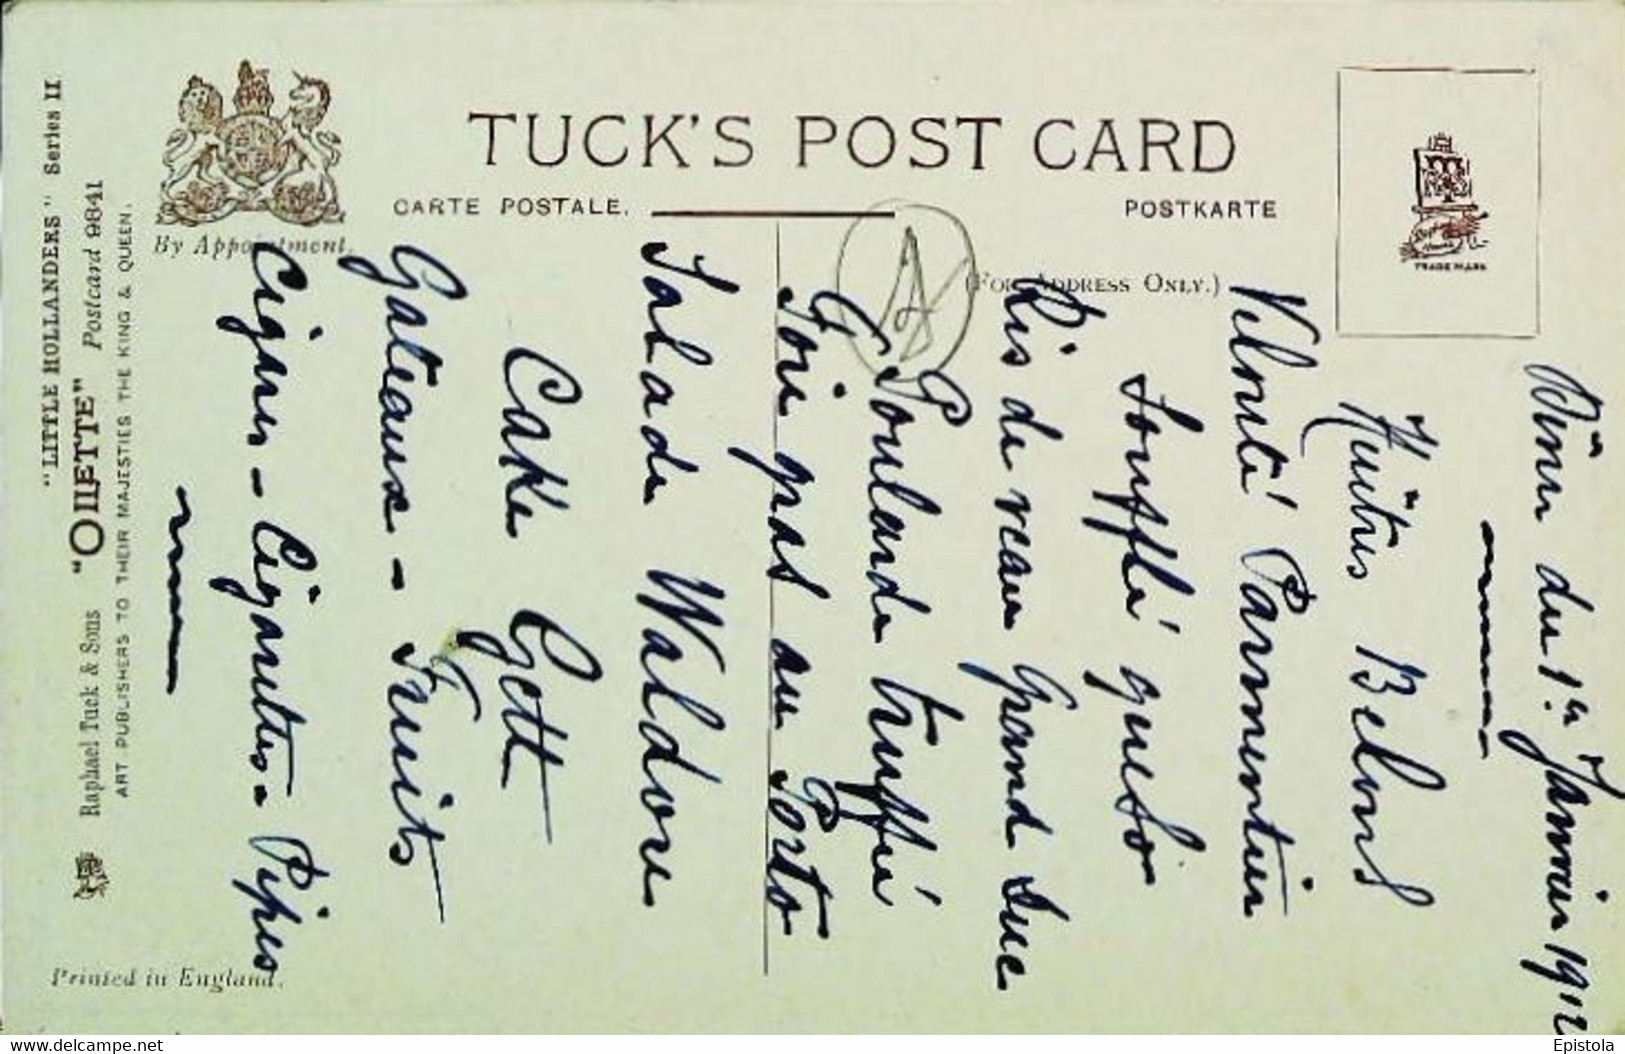 TUCK'S POST CARD
CARTE POSTALE.
POSTKARTE
(FOR ADDRESS ONLY.)
By Appointment.
TRADE MARK
"LITTLE HOLLANDERS" Series II
Raphael Tuck & Sons "OILETTE" Postcard 9841
ART PUBLISHERS TO THEIR MAJESTIES THE KING & QUEEN.
Printed in England.
Dîner du 1er Janvier 1912
Huîtres Belons
Velouté Parmentier
Soufflé queso
Ris de veau Grand Duc
Poularde truffée
Foie gras au Porto
Salade Waldore
Cake Gett
Gateaux - Fruits
Cigares - Cigarettes - Pipes
www.delcampe.net
Epistola